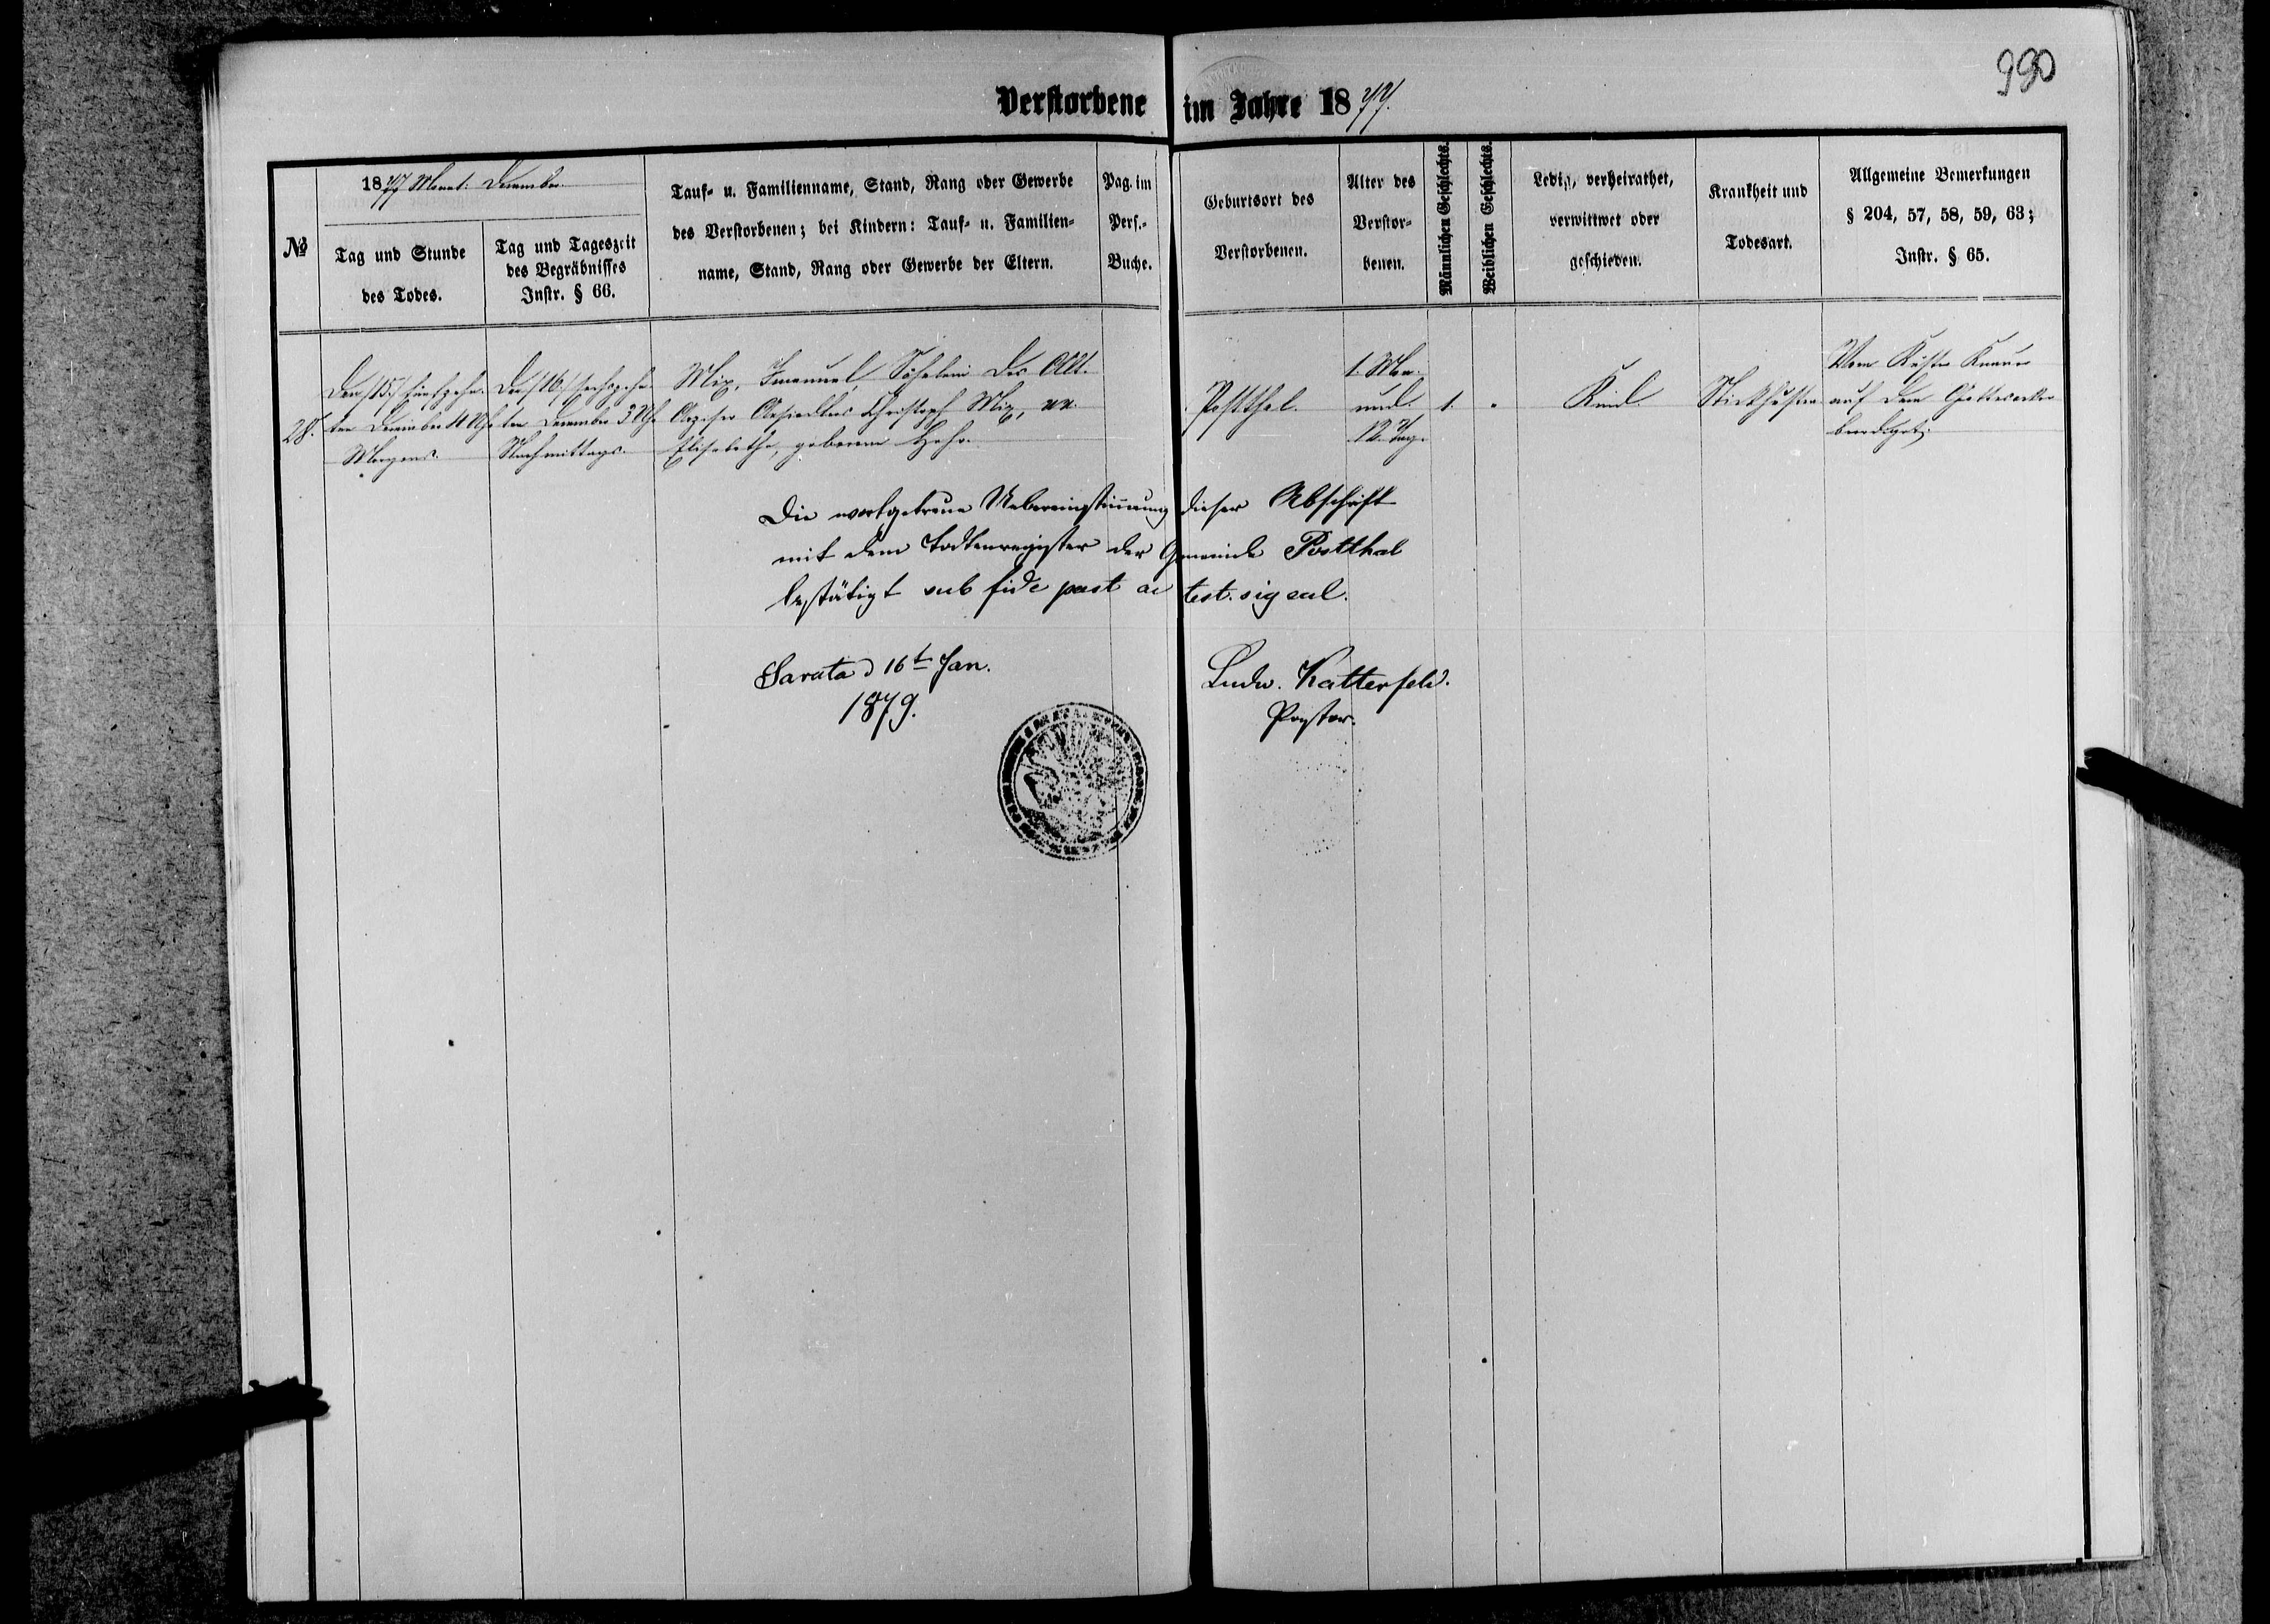 990
Verstorbene im Jahre 1877.
№
1877 Monat: December.
Tag und Stunde
des Todes.
Tag und Tageszeit
des Begräbnisses
Instr. § 66.
Tauf- u. Familienname, Stand, Rang oder Gewerbe
des Verstorbenen; bei Kindern: Tauf- u. Familien-
name, Stand, Rang oder Gewerbe der Eltern.
Pag. im
Pers.-
Buche.
Geburtsort des
Verstorbenen.
Alter des
Verstor-
benen.
Männlichen Geschlechts.
Weiblichen Geschlechts.
Ledig, verheirathet,
verwittwet oder
geschieden.
Krankheit und
Todesart.
Allgemeine Bemerkungen
§ 204, 57, 58, 59, 63;
Instr. § 65.
28.
Den /15./ fünfzehn-
ten December 4 Uhr
Morgens.
Den /16./ sechszehn-
ten December 3 Uhr
Nachmittags.
Mix, Immanuel, Söhnlein des Alt-
Arziser Ansiedlers Christoph Mix, u.
Elisabetha, geborene Hehr.
Postthal.
1. Mon.
und
12. Tage
1.
"
Kind.
Stickhusten
Vom Küster Knauer
auf dem Gottesacker
beerdigt.
Die wortgetreue Uebereinstimmung dieser Abschrift
mit dem Todtenregister der Gemeinde Postthal
bestätigt sub fide past ac test. sig eccl.
Sarata d 16t Jan.
1879.
Ludw. Katterfeld.
Pastor.